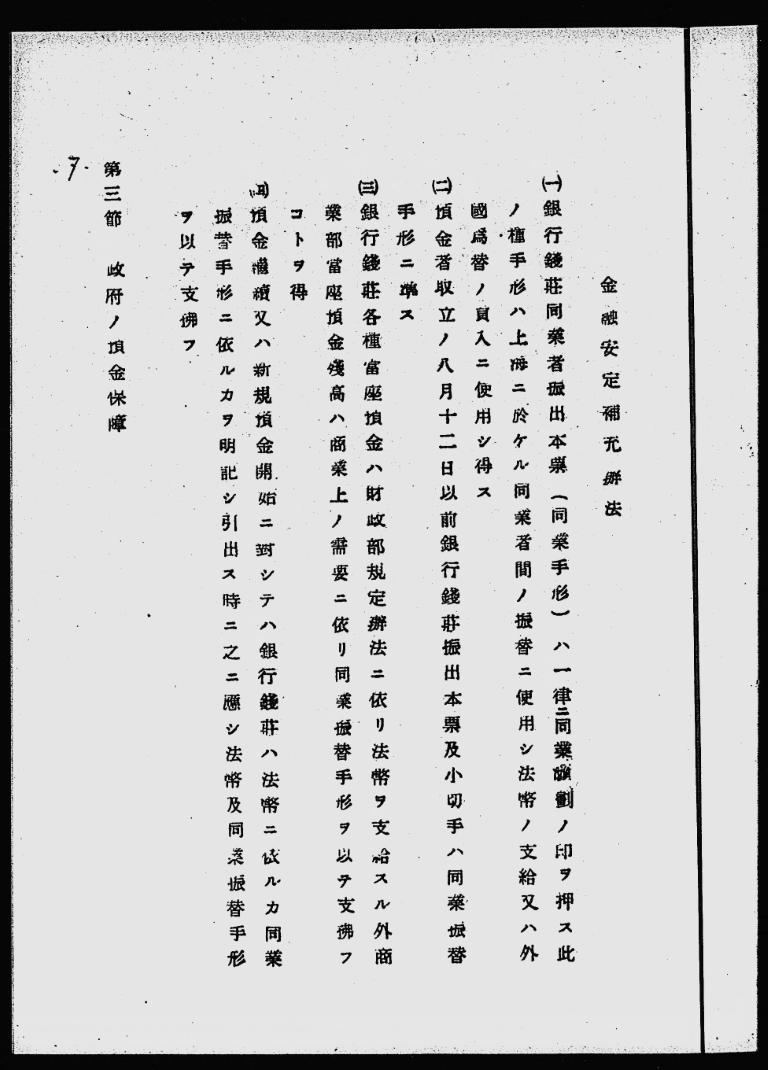 金融安定補充辦法
㈠銀行錢莊同業者振出本票(同業手形)ハ一律ニ同業劃ノ印ヲ押ス此
ノ種手形ハ上海ニ於ケル同業者間ノ振替ニ使用シ法幣ノ支給又ハ外
國爲替ノ買入ニ使用シ得ス
㈡預金者取立ノ八月十二日以前銀行錢莊振出本票及小切手ハ同業振替
手形ニ準ス
㈢銀行錢莊各種當座預金ハ財政部規定辦法ニ依リ法幣ヲ支給スル外商
業部當座預金殘高ハ商業上ノ需要ニ依リ同業振替手形ヲ以テ支拂フ
コトヲ得
㈣預金繼續又ハ新規預金開始ニ對シテハ銀行錢莊ハ法幣ニ依ルカ同業
振替手形ニ依ルカヲ明記シ引出ス時ニ之ニ應シ法幣及同業振替手形
ヲ以テ支拂フ
第三節 政府ノ預金保障
7